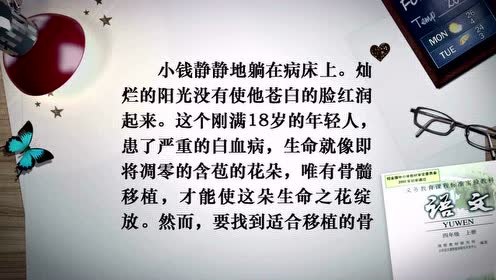 小钱静静地躺在病床上。灿
烂的阳光没有使他苍白的脸红润
起来。这个刚满18岁的年轻人，
患了严重的白血病，生命就像即
将凋零的含苞的花朵，唯有骨髓
移植，才能使这朵生命之花绽
放。然而，要找到适合移植的骨
Temp
MON 26
TUE 24
24
23
义务教育课程标准实验教科书
语文
YUWEN
四年级 上册